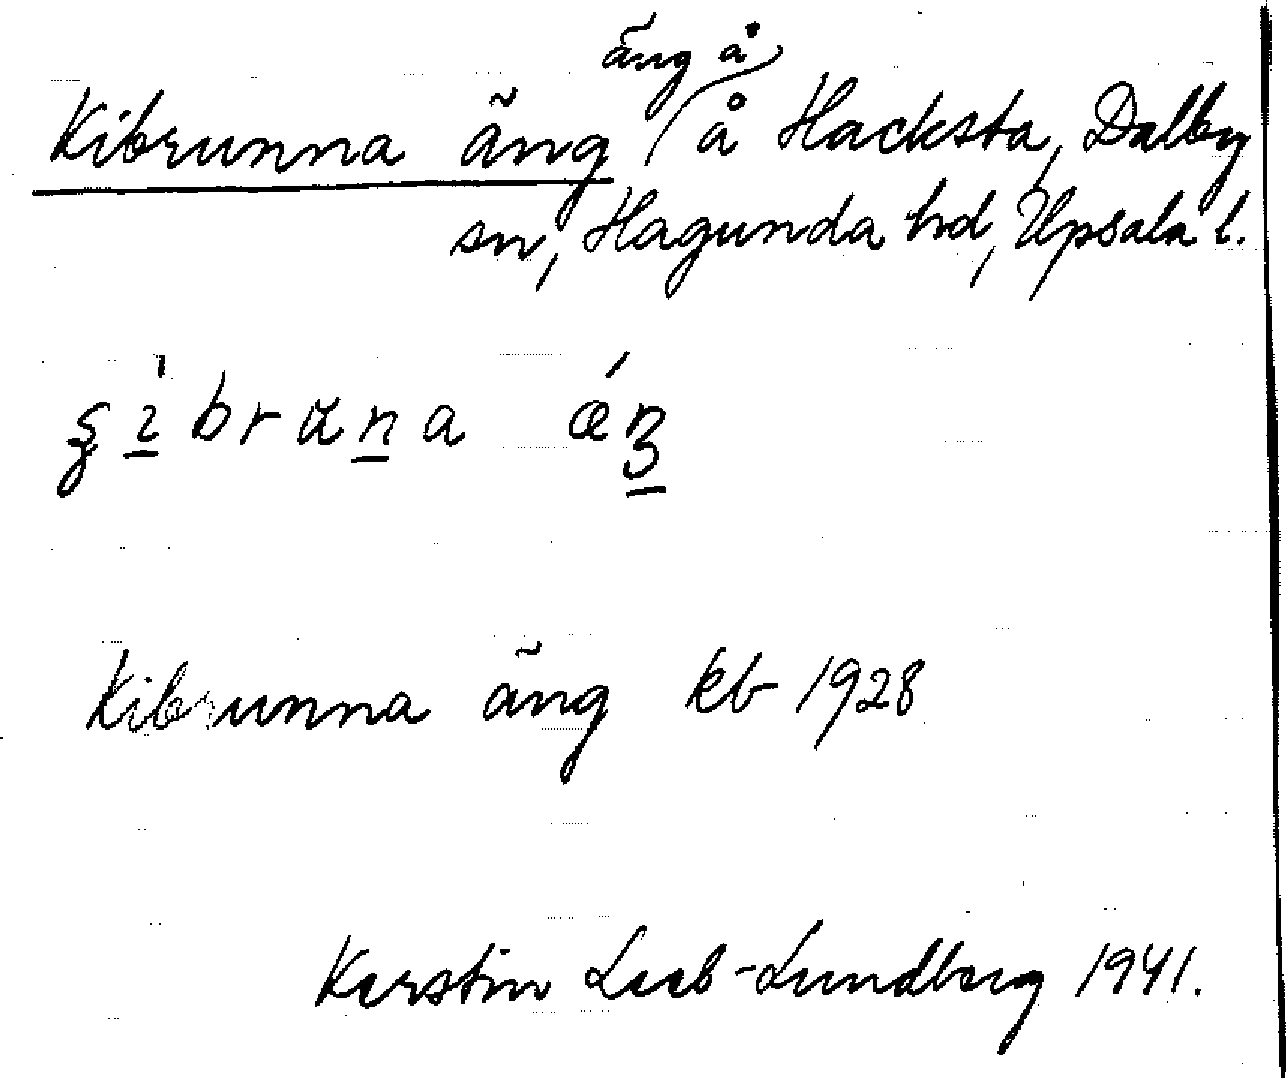 äng å
Kibrunna äng å Hacksta, Dalby
sn, Hagunda hd, Upsala l.
Kibrunna äng kb 1928
Kerstin Leeb-Lundberg 1941.